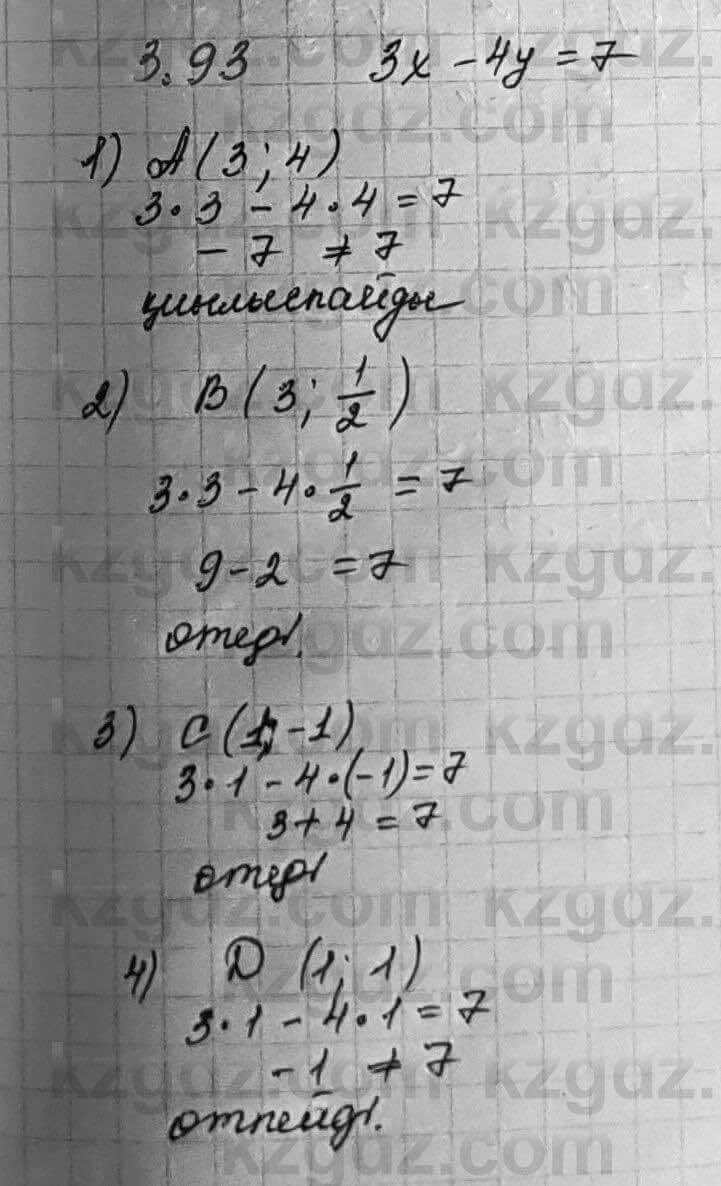 3.93 3x - 4y = 7
1) A(3; 4)
3·3 - 4·4 = 7
-7 ≠ 7
2) B(3; 1/2)
3·3 - 4·1/2 = 7
9-2 = 7
өтеді.
3) C(1; -1)
3·1 - 4·(-1) = 7
3+4 = 7
өтеді
4) D (1; 1)
3·1 - 4·1 = 7
-1 ≠ 7
өтпейді.
kzgdz.com